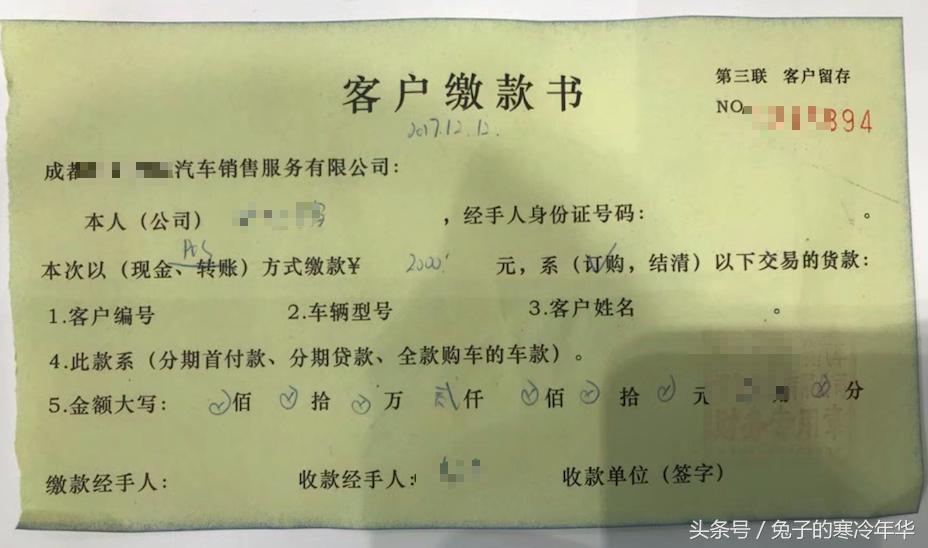 第三联 客户留存
客户缴款书
NO 894
2017.12.12.
成都 汽车销售服务有限公司：
本人（公司） ，经手人身份证号码： 。
POS
本次以（现金、转账）方式缴款¥ 2000 元，系（订购，结清）以下交易的货款：
1.客户编号 2.车辆型号 3.客户姓名 。
4.此款系（分期首付款、分期贷款、全款购车的车款）。
5.金额大写： 佰 拾 万 贰仟 佰 拾 元 分
财务专用章
缴款经手人： 收款经手人： 收款单位（签字）
头条号 / 兔子的寒冷年华